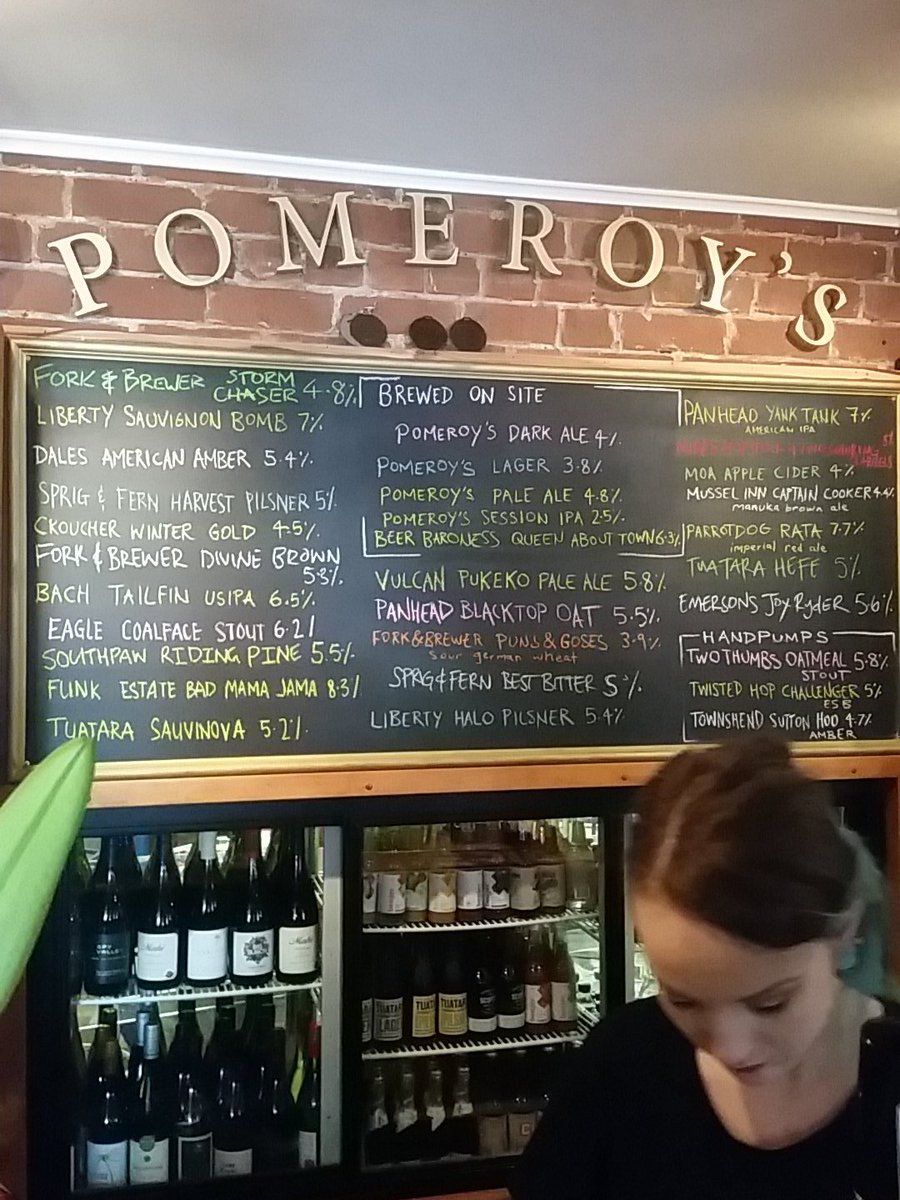 POMEROY'S
FORK & BREWER STORM CHASER 4.8%
LIBERTY SAUVIGNON BOMB 7%
DALES AMERICAN AMBER 5.4%
SPRIG & FERN HARVEST PILSNER 5%
CROUCHER WINTER GOLD 4.5%
FORK & BREWER DIVINE BROWN
5.8%
BACH TAILFIN USIPA 6.5%
EAGLE COALFACE STOUT 6.2%
SOUTHPAW RIDING PINE 5.5%
FUNK ESTATE BAD MAMA JAMA 8.3%
TUATARA SAUVINOVA 5.2%
BREWED ON SITE
POMEROY'S DARK ALE 4%
POMEROY'S LAGER 3.8%
POMEROY'S PALE ALE 4.8%
POMEROY'S SESSION IPA 2.5%
BEER BARONESS QUEEN ABOUT TOWN 6.3%
VULCAN PUKEKO PALE ALE 5.8%
PANHEAD BLACKTOP OAT 5.5%
FORK & BREWER PUNS & GOSES 3.9%
sour german wheat
SPRIG & FERN BEST BITTER 5%
LIBERTY HALO PILSNER 5.4%
PANHEAD YANK TANK 7%
AMERICAN IPA
MOA APPLE CIDER 4%
MUSSEL INN CAPTAIN COOKER 4.4%
manuka brown ale
PARROTDOG RATA 7.7%
imperial red ale
TUATARA HEFE 5%
EMERSONS JOY RYDER 5.6%
HANDPUMPS
TWO THUMBS OATMEAL 5.8%
STOUT
TWISTED HOP CHALLENGER 5%
ESB
TOWNSHEND SUTTON HOO 4.7%
AMBER
TUATARA